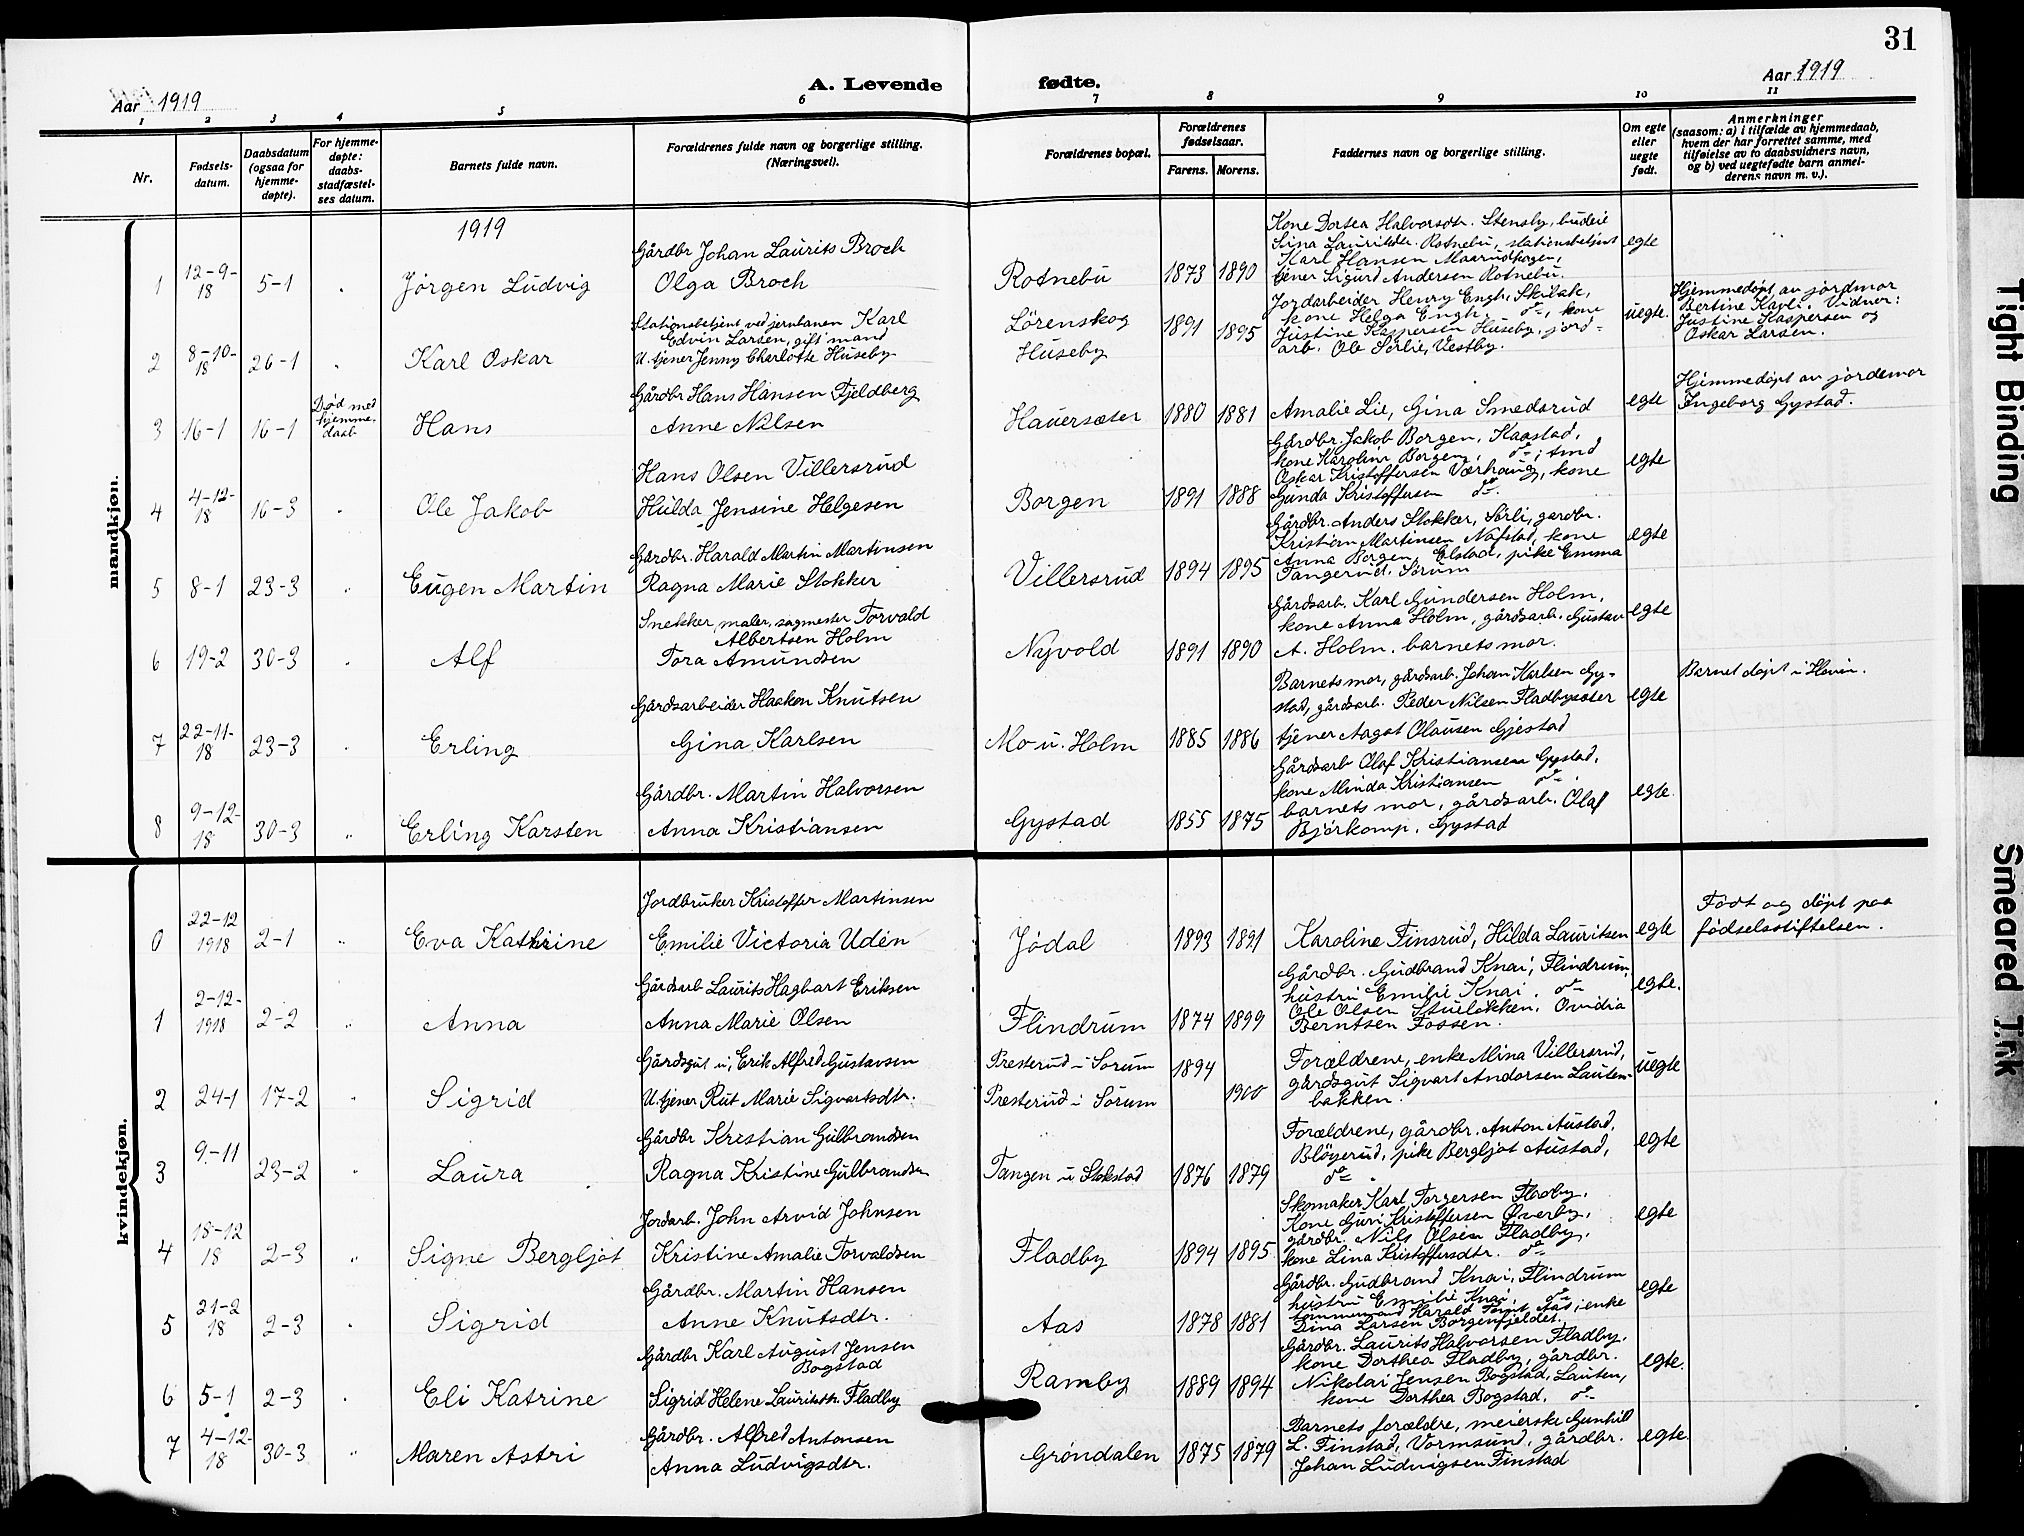 31
Aar 1919
A. Levende fødte.
Aar 1919
1 2 3 4 5 6 7 8 9 10 11
Nr.
Fødsels-
datum.
Daabsdatum
(ogsaa for
hjemme-
døpte).
For hjemme-
døpte:
daabs-
stadfæstel-
ses datum.
Barnets fulde navn.
Forældrenes fulde navn og borgerlige stilling.
(Næringsvei).
Forældrenes bopæl.
Forældrenes
fødselsaar.
Farens. Morens.
Faddernes navn og borgerlige stilling.
Om egte
eller
uegte
født.
Anmerkninger
(saasom: a) i tilfælde av hjemmedaab,
hvem der har forrettet samme, med
tilføielse av to daabsvidners navn,
og b) ved uegtefødte barn anmel-
derens navn m. v.).
mandkjøn.
1919
1
12-9-
18
5-1
Jørgen Ludvig
Gårdbr Johan Laurits Broch
Olga Broch
Rotnebu
1873 1890
Kone Dortea Halvorsdtr. Stensby, budeie
Sina Lauritsdtr. Rotnebu, stationsbetjent
Karl Hansen Maarudhagen,
tjener Sigurd Andersen Rotnebu.
egte
2
8-10-
18
26-1
Karl Oskar
Stationsbetjent ved jernbanen Karl
Edvin Larsen, gift mand
U. tjener Jenny Charlotte Huseby
Lörenskog
Huseby
1891 1895
Jordarbeider Henry Engh, Skilak,
kone Helga Engh, do, kone
Justine Kaspersen Huseby, jord-
arb. Ole Sørlie, Vestby.
uegte.
Hjemmedøpt av jordmor
Bertine Kavli. Vidner:
Justine Kaspersen og
Oskar Larsen.
3
16-1
16-1
Død med
hjemme-
daab
Hans
Gårdbr Hans Hansen Fjeldberg
Anne Nilsen
Hauersæter
1880 1881
Amalie Lie, Gina Smedsrud
egte
Hjemmedøpt av jordemor
Ingeborg Gystad.
4
4-12-
18
16-3
Ole Jakob
Hans Olsen Villersrud
Hilda Jensine Helgesen
Borgen
1891 1888
Gårdbr. Jakob Borgen, Kaastad,
kone Karoline Borgen, do, smed
Oskar Kristoffersen Værhaug, kone
Gunda Kristoffersen do.
egte
5
8-1
23-3
Eugen Martin
Gårdbr. Harald Martin Martinsen
Ragna Marie Stokker
Villersrud
1894 1895
Gårdbr. Anders Stokker, Sörli, gardbr.
Kristian Martinsen Nafstad, kone
Anna Borgen, Elstad, pike Emma
Tangerud, Sørum
egte
6
19-2
30-3
Alf
Snekker, maler, sagmester Torvald
Albertsen Holm
Tora Amundsen
Nyvold
1891 1890
Gårdsarb. Karl Gundersen Holm,
kone Anna Holm, gårdsarb. Gustav
A. Holm. barnets mor.
egte
7
22-11-
18
23-3
Erling
Gårdsarbeider Haakon Knutsen
Gina Karlsen
Mo u. Holm
1885 1886
Barnets mor, gårdsarb. Johan Karlsen Gy-
stad, gårdsarb. Peder Nilsen Fladbysæter
tjener Aagot Olausen Gjestad
egte
Barnet døpt i Hovin.
8
9-12-
18
30-3
Erling Karsten
Gårdbr. Martin Halvorsen
Anna Kristiansen
Gystad
1855 1875
Gårdsarb Olaf Kristiansen Gystad,
kone Minda Kristiansen do
barnets mor, gårdsarb. Olaf
Björkomp. Gystad
egte.
kvindekjøn.
0
22-12
1918
2-1
Eva Kathrine
Jordbruker Kristoffer Martinsen
Emilie Victoria Uden
Jødal
1893 1891
Karoline Finsrud, Hilda Lauritsen
egte
Født og døpt paa
fødselsstiftelsen.
1
2-12-
1918
2-2
Anna
Gårdsarb Laurits Hagbart Eriksen
Anna Marie Olsen
Flindrum
1874 1899
Gårdbr. Gudbrand Knai, Flindrum,
hustru Emilie Knai, do
Ole Olsen Stuelökken. Ovidia
Berntsen Fossen.
egte.
2
24-1
17-2
Sigrid
Gårdsgut u, Erik Alfred Gustavsen
U. tjener Rut Marie Sigvartsdtr.
Presterud i Sørum
Presterud i Sørum
1894
1900
Forældrene, enke Mina Villersrud,
gårdsgut Sigvart Andersen Lauten-
bakken.
uegte
3
9-11
23-2
Laura
Gårdbr Kristian Gulbrandsen
Ragna Kristine Gulbrandsen
Tangen u Stokstad
1876 1879
Forældrene, gårdbr. Anton Austad,
Bløyerud, pike Bergljot Austad,
do
egte
4
18-12
18
2-3
Signe Bergljot
Jordarb. John Arvid Johnsen
Kristine Amalie Torvaldsen
Fladby
1894 1895
Skomaker Karl Torgersen Fladby,
Kone Guri Kristoffersen Øverby,
gårdbr. Nils Olsen Fladby,
kone Lina Kristoffersdtr. do
egte
5
21-2
18
2-3
Sigrid
Gårdbr. Martin Hansen
Anne Knutsdtr.
Aas
1878 1881
Gårdbr. Gudbrand Knai, Flindrum
hustru Emilie Knai, do
Harald Aas, enke
Dina Larsen Borgenfjeldet.
egte
6
5-1
2-3
Eli Katrine
Gårdbr Karl August Jensen
Bogstad
Sigrid Helene Lauritsdtr. Fladby
Ramby
1889 1894
Gårdbr. Laurits Halvorsen Fladby,
kone Dorthea Fladby, gårdbr.
Nikolai Jensen Bogstad, Lauten,
kone Dorthea Bogstad, do
egte.
7
4-12-
18
30-3
Maren Astri
Gårdbr. Alfred Antonsen
Anna Ludvigsdtr.
Gröndalen
1875 1879
Barnets forældre, meierske Gunhild
L. Finstad, Vormsund, gårdbr.
Johan Ludvigsen Finstad
egte.
Tight Binding
Smeared Ink